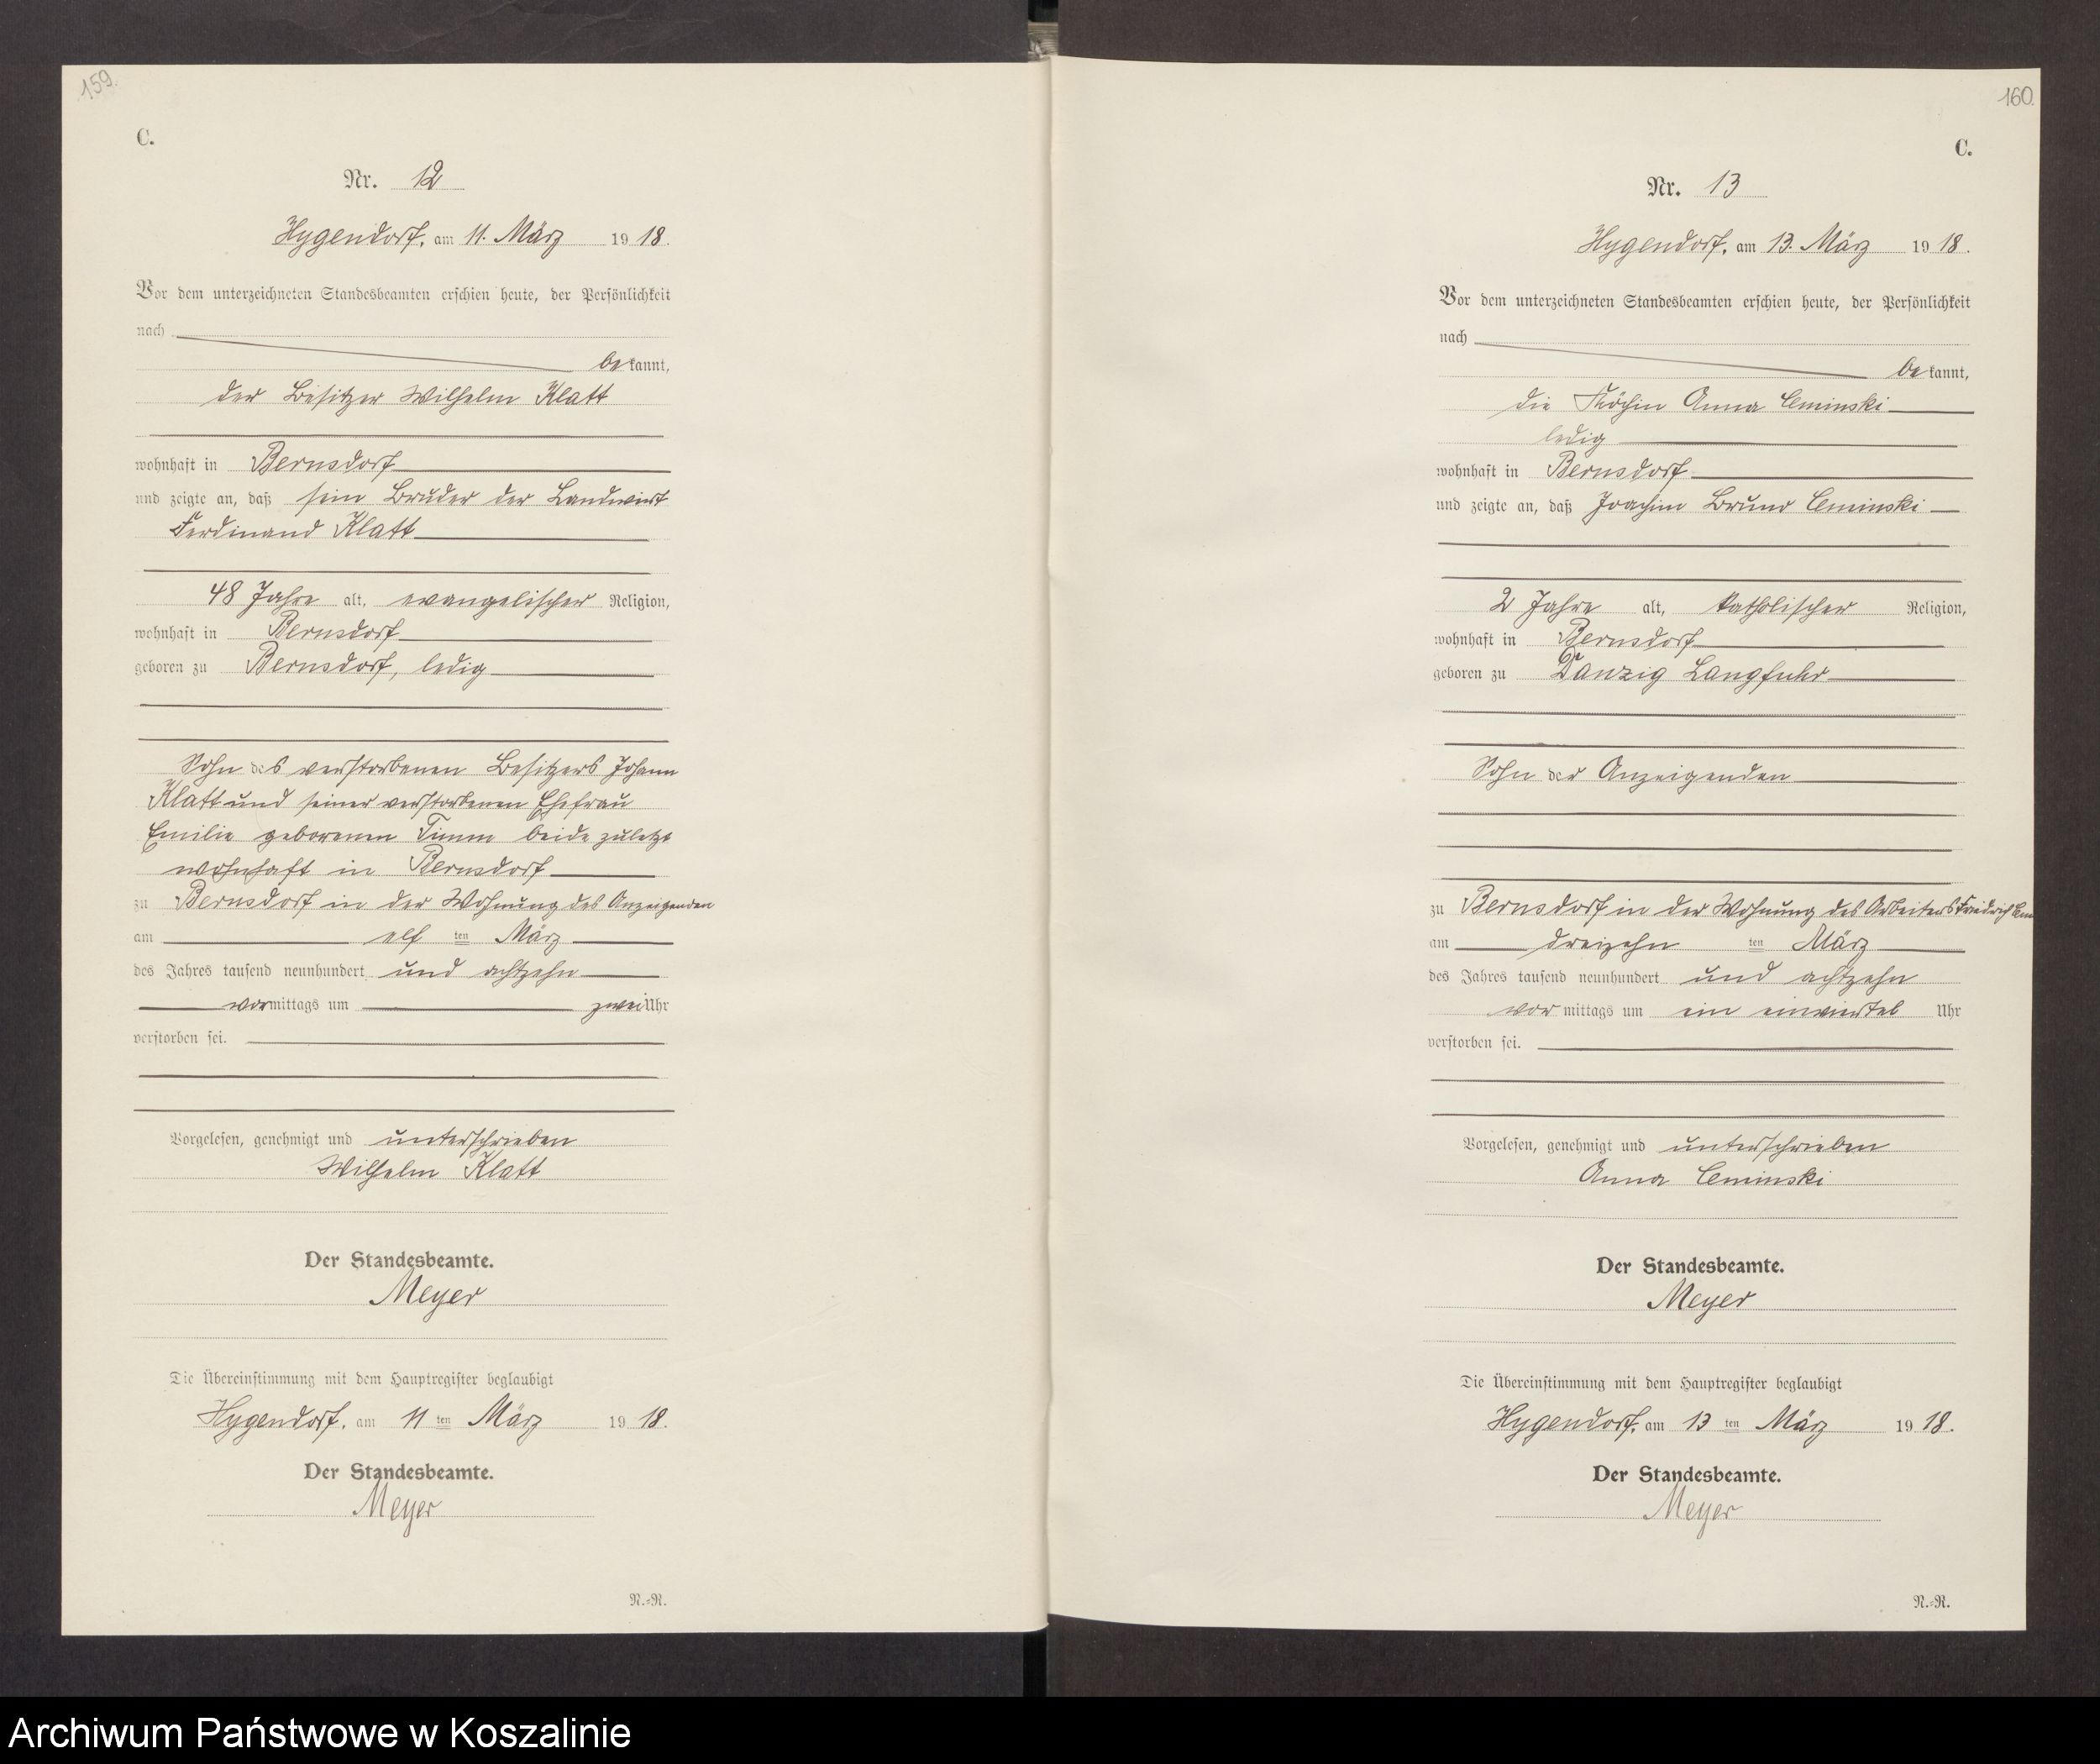 159.
C.
Nr. 12
Hygendorf, am 11. März 1918.
Vor dem unterzeichneten Standesbeamten erschien heute, der Persönlichkeit
nach
bekannt,
der Besitzer Wilhelm Klatt
wohnhaft in Bernsdorf
und zeigte an, daß sein Bruder der Landwirt
Ferdinand Klatt
48 Jahre alt, evangelischer Religion,
wohnhaft in Bernsdorf
geboren zu Bernsdorf, ledig
Sohn des verstorbenen Besitzers Johann
Klatt und seiner verstorbenen Ehefrau
Emilie geborenen Timm beide zuletzt
wohnhaft in Bernsdorf
zu Bernsdorf in der Wohnung des Anzeigenden
am elf ten März
des Jahres tausend neunhundert und achtzehn
vormittags um zwei Uhr
verstorben sei.
Vorgelesen, genehmigt und unterschrieben
Wilhelm Klatt
Der Standesbeamte.
Meyer
Die Übereinstimmung mit dem Hauptregister beglaubigt
Hygendorf, am 11 ten März 1918.
Der Standesbeamte.
Meyer
N.=R.
160.
C.
Nr. 13
Hygendorf, am 13. März 1918.
Vor dem unterzeichneten Standesbeamten erschien heute, der Persönlichkeit
nach
bekannt,
die Köchin Anna Ceminski
ledig
wohnhaft in Bernsdorf
und zeigte an, daß Joachim Bruno Ceminski
2 Jahre alt, katholischer Religion,
wohnhaft in Bernsdorf
geboren zu Danzig Langfuhr
Sohn der Anzeigenden
zu Bernsdorf in der Wohnung des Arbeiters Friedrich
am dreizehn ten März
des Jahres tausend neunhundert und achtzehn
vormittags um ein einviertel Uhr
verstorben sei.
Vorgelesen, genehmigt und unterschrieben
Anna Ceminski
Der Standesbeamte.
Meyer
Die Übereinstimmung mit dem Hauptregister beglaubigt
Hygendorf, am 13 ten März 1918.
Der Standesbeamte.
Meyer
N.=R.
Archiwum Państwowe w Koszalinie